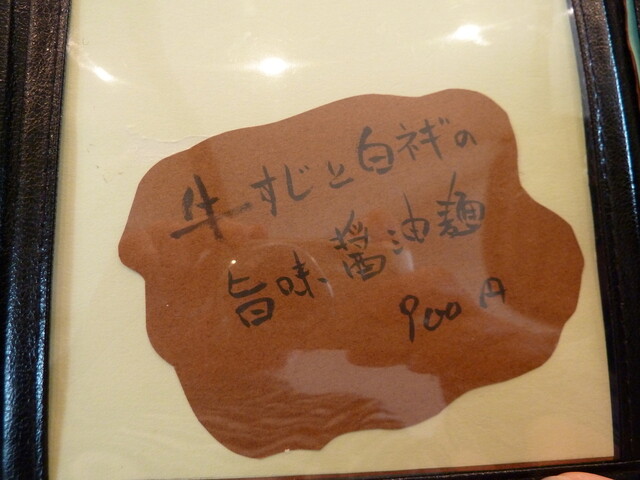 牛すじと白ネギの
旨味醤油麺
900円